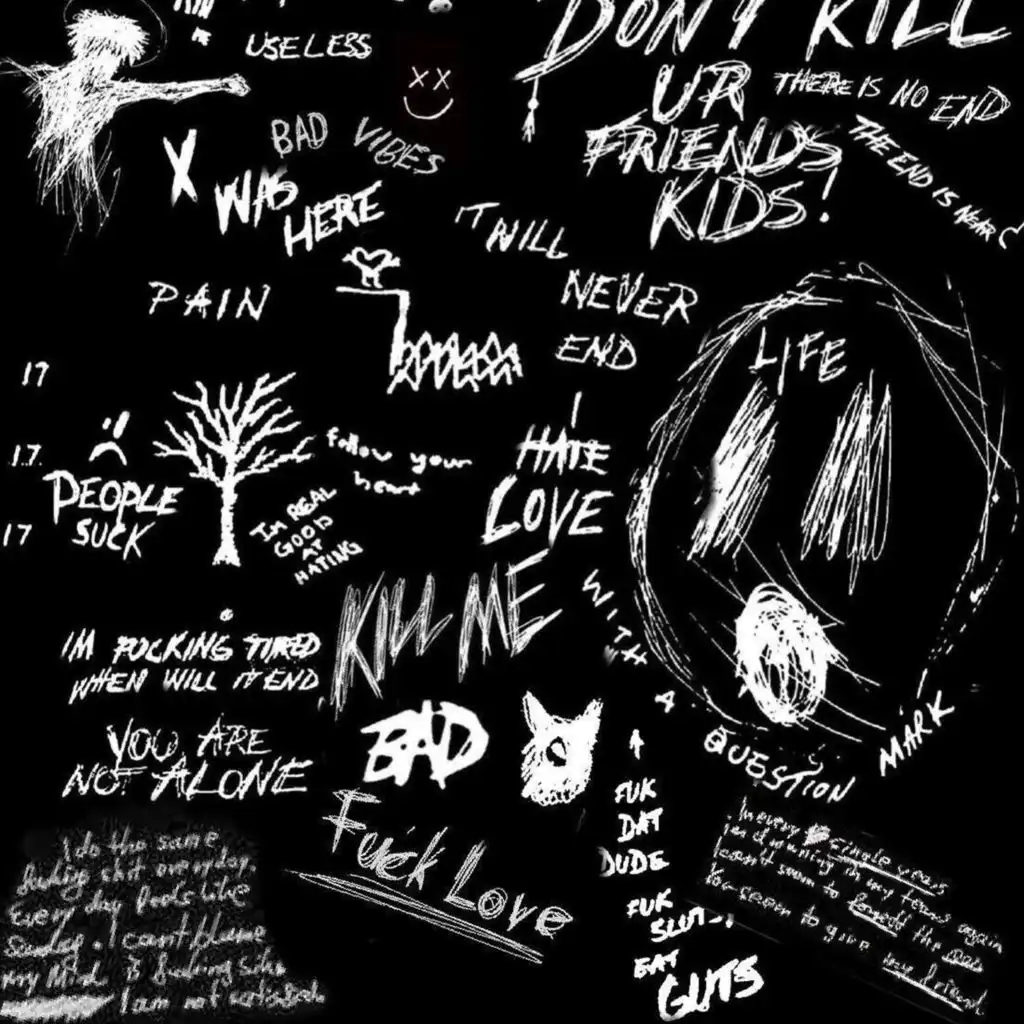 USELESS
DON'T KILL
UR
FRIENDS
KIDS!
THERE IS NO END
THE END IS NEAR
BAD VIBES
X WAS
HERE
IT WILL
NEVER
END
PAIN
LIFE
17
17.
17
PEOPLE
SUCK
follow your
heart
IM REAL
GOOD
AT
HATING
I
HATE
LOVE
KILL ME
WITH A QUESTION MARK
IM FUCKING TIRED
WHEN WILL IT END
YOU ARE
NOT ALONE
BAD
Fuck Love
FUK
DAT
DUDE
FUK
SLUTS
EAT
GUTS
I do the same
fucking shit everyday.
Every day feels like
Sunday. I can't blame
my Mind. is fucking sick
I am not
In every single years
im drowning in my tears again
I can't seem to forget the
You seem to give my friend